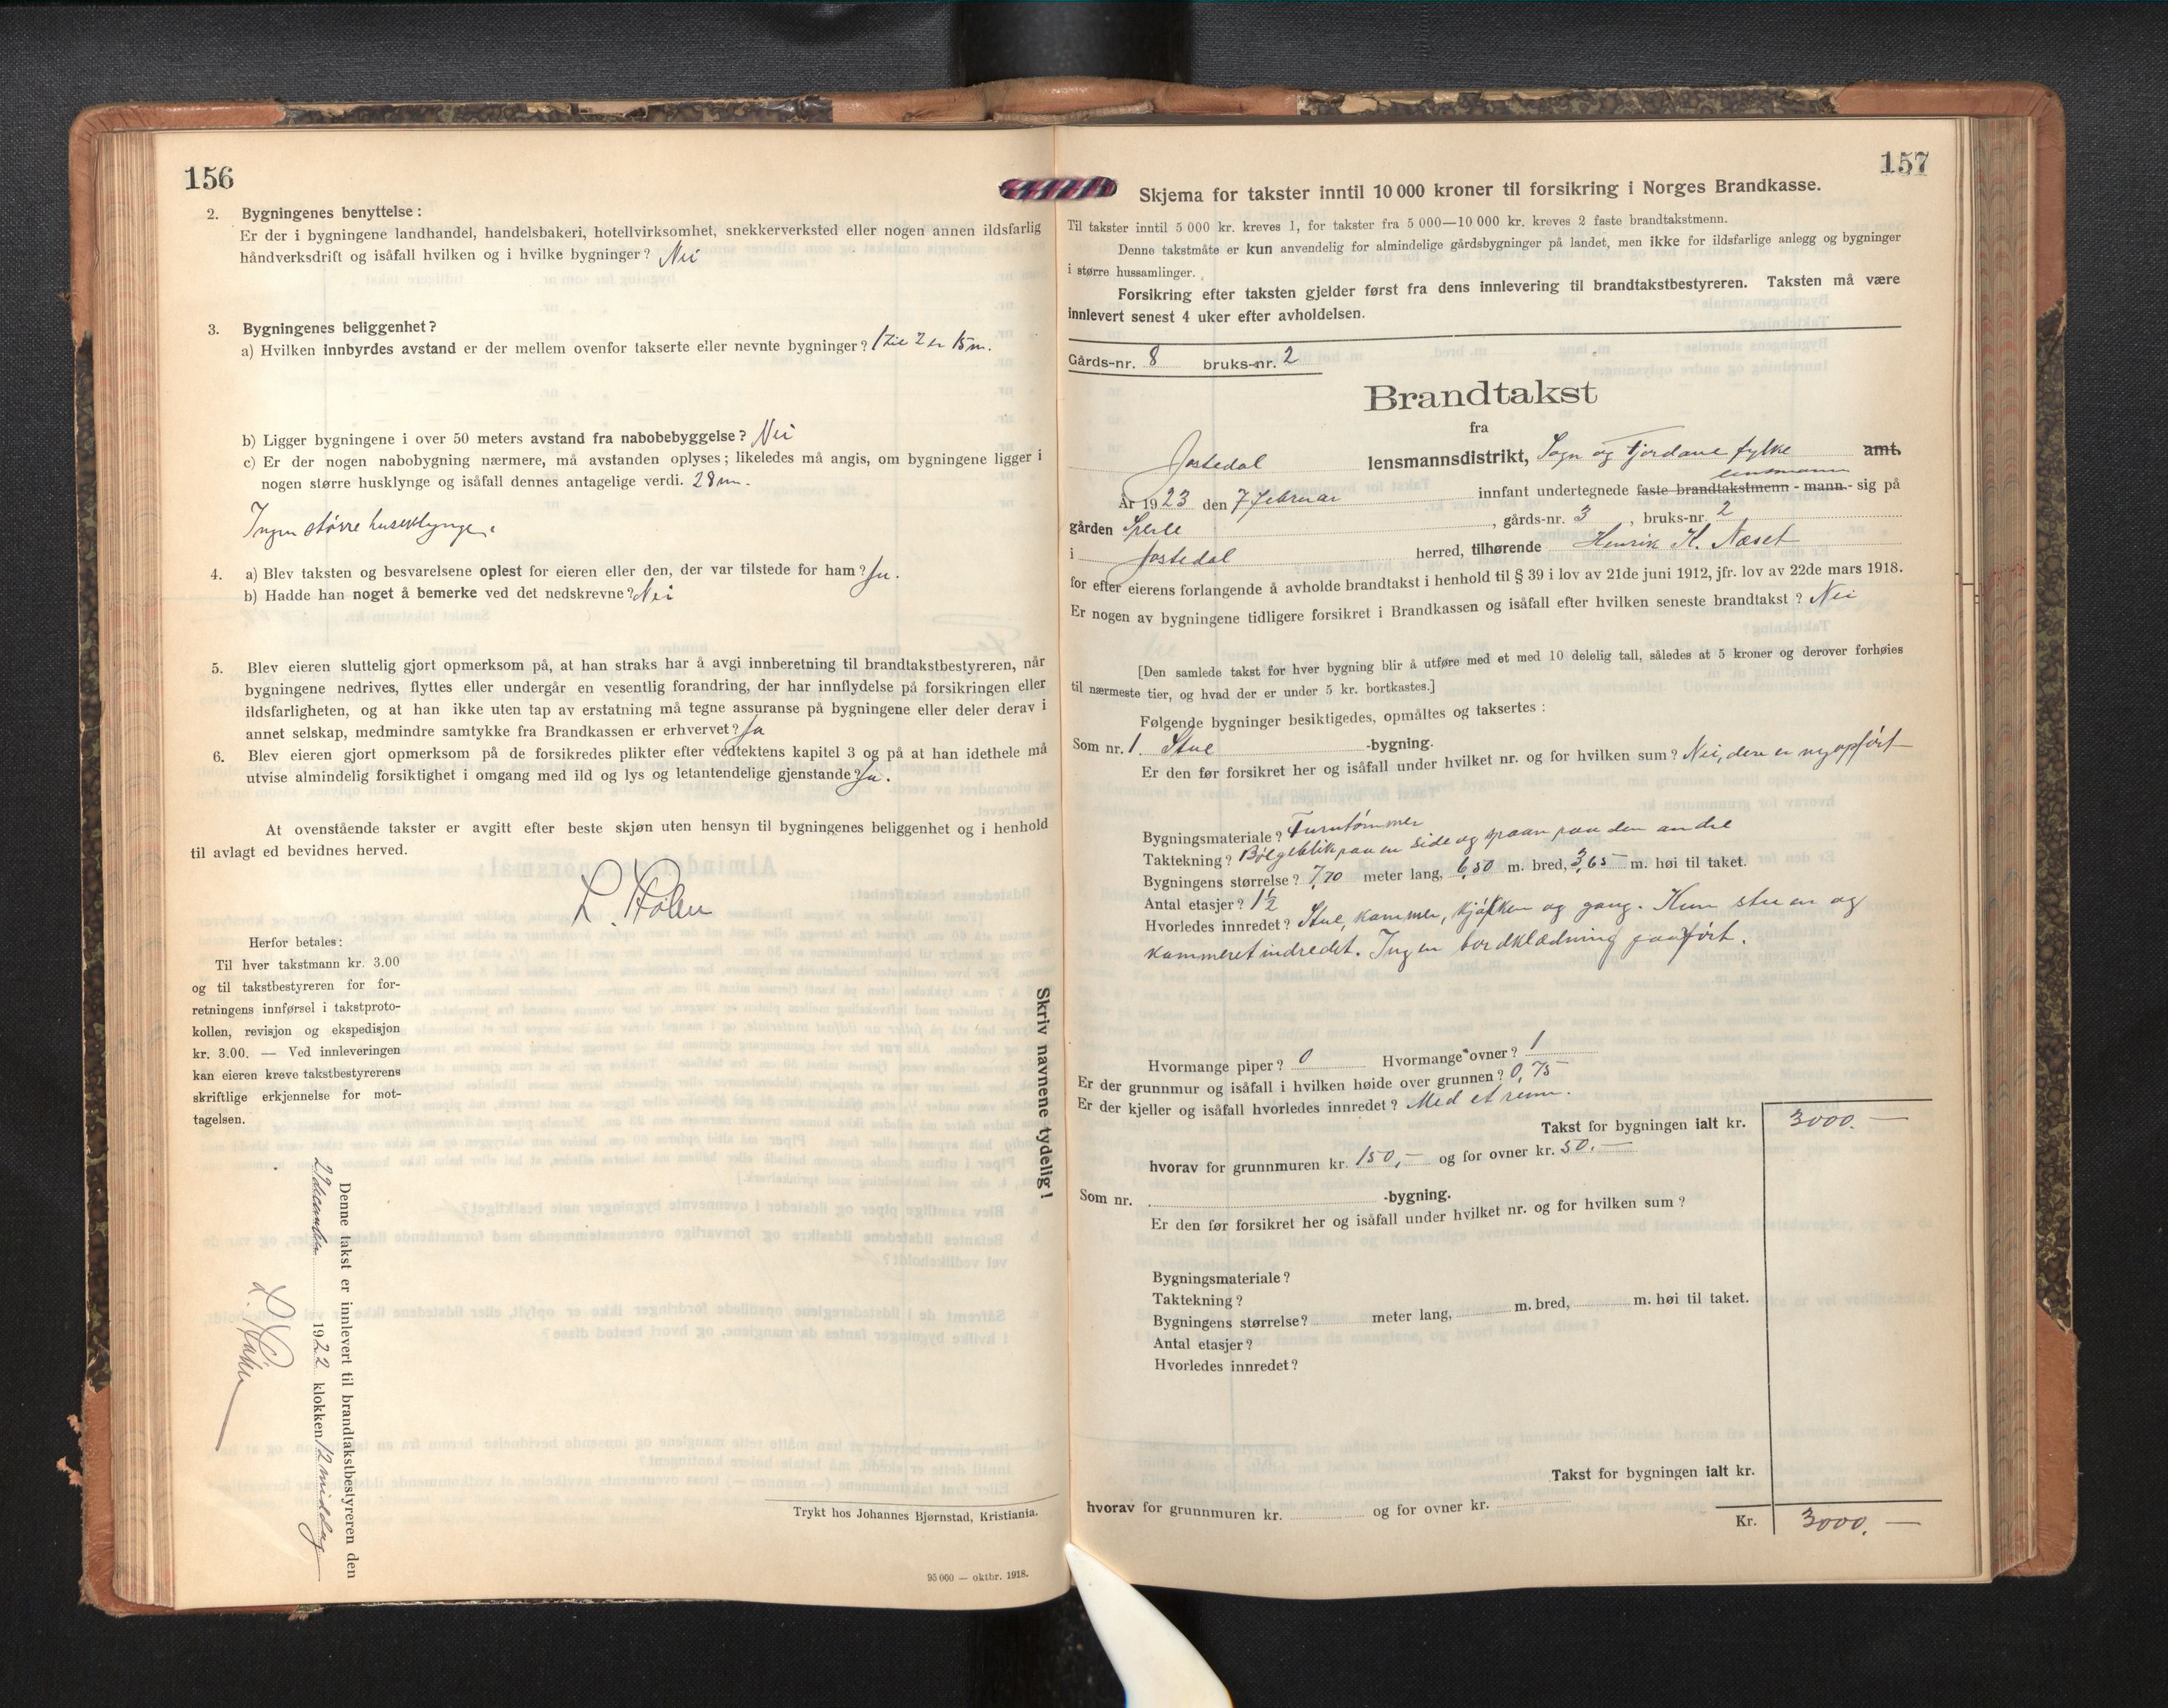 156
2. Bygningenes benyttelse:
Er der i bygningene landhandel, handelsbakeri, hotellvirksomhet, snekkerverksted eller nogen annen ildsfarlig
håndverksdrift og isåfall hvilken og i hvilke bygninger? Nei
3. Bygningenes beliggenhet?
a) Hvilken innbyrdes avstand er der mellem ovenfor takserte eller nevnte bygninger? 1 til 2 er 15 m.
b) Ligger bygningene i over 50 meters avstand fra nabobebyggelse? Nei
c) Er der nogen nabobygning nærmere, må avstanden oplyses; likeledes må angis, om bygningene ligger i
nogen større husklynge og isåfall dennes antagelige verdi. 28 m.
Ingen større huseklynge.
4. a) Blev taksten og besvarelsene oplest for eieren eller den, der var tilstede for ham? Ja.
b) Hadde han noget å bemerke ved det nedskrevne? Nei
5. Blev eieren sluttelig gjort opmerksom på, at han straks har å avgi innberetning til brandtakstbestyreren, når
bygningene nedrives, flyttes eller undergår en vesentlig forandring, der har innflydelse på forsikringen eller
ildsfarligheten, og at han ikke uten tap av erstatning må tegne assuranse på bygningene eller deler derav i
annet selskap, medmindre samtykke fra Brandkassen er erhvervet? Ja
6. Blev eieren gjort opmerksom på de forsikredes plikter efter vedtektens kapitel 3 og på at han idethele må
utvise almindelig forsiktighet i omgang med ild og lys og letantendelige gjenstande? Ja.
At ovenstående takster er avgitt efter beste skjøn uten hensyn til bygningenes beliggenhet og i henhold
til avlagt ed bevidnes herved.
Herfor betales:
Til hver takstmann kr. 3.00
og til takstbestyreren for for-
retningens innførsel i takstproto-
kollen, revisjon og ekspedisjon
kr. 3.00. — Ved innleveringen
kan eieren kreve takstbestyrerens
skriftlige erkjennelse for mot-
tagelsen.
Skriv navnene tydelig!
Denne takst er innlevert til brandtakstbestyreren den
december 1922 klokken 12 middag
Trykt hos Johannes Bjørnstad, Kristiania.
95 000 — oktbr. 1918.
157
Skjema for takster inntil 10 000 kroner til forsikring i Norges Brandkasse.
Til takster inntil 5 000 kr. kreves 1, for takster fra 5 000—10 000 kr. kreves 2 faste brandtakstmenn.
Denne takstmåte er kun anvendelig for almindelige gårdsbygninger på landet, men ikke for ildsfarlige anlegg og bygninger
i større hussamlinger.
Forsikring efter taksten gjelder først fra dens innlevering til brandtakstbestyreren. Taksten må være
innlevert senest 4 uker efter avholdelsen.
Gårds-nr. 8 bruks-nr. 2
Brandtakst
fra
Jostedal lensmannsdistrikt, Sogn og Fjordane fylke amt.
lensmann
År 1923 den 7 februar innfant undertegnede faste brandtakstmenn - mann - sig på
gården Sperle, gårds-nr. 3, bruks-nr. 2
i Jostedal herred, tilhørende Henrik K. Næset
for efter eierens forlangende å avholde brandtakst i henhold til § 39 i lov av 21de juni 1912, jfr. lov av 22de mars 1918.
Er nogen av bygningene tidligere forsikret i Brandkassen og isåfall efter hvilken seneste brandtakst? Nei
[Den samlede takst for hver bygning blir å utføre med et med 10 delelig tall, således at 5 kroner og derover forhøies
til nærmeste tier, og hvad der er under 5 kr. bortkastes.]
Følgende bygninger besiktigedes, opmåltes og taksertes:
Som nr. 1. Stue -bygning.
Er den før forsikret her og isåfall under hvilket nr. og for hvilken sum? Nei, den er nyopført
Bygningsmateriale? Furutømmer
Taktekning? Bølgeblik paa en side og spaan paa den andre
Bygningens størrelse? 7,70 meter lang, 6,50 m. bred, 3,65 m. høi til taket.
Antal etasjer? 1½
Hvorledes innredet? Stue, kammer, kjøkken og gang. Kun stuen og
kammeret indredet. Ingen bordklædning paaført.
Hvormange piper? 0 Hvormange ovner? 1
Er der grunnmur og isåfall i hvilken høide over grunnen? 0,75
Er der kjeller og isåfall hvorledes innredet? Med et rum.
Takst for bygningen ialt kr. 3000.—
hvorav for grunnmuren kr. 150,— og for ovner kr. 50.—
Som nr. -bygning.
Er den før forsikret her og isåfall under hvilket nr. og for hvilken sum?
Bygningsmateriale?
Taktekning?
Bygningens størrelse? meter lang, m. bred, m. høi til taket.
Antal etasjer?
Hvorledes innredet?
Takst for bygningen ialt kr.
hvorav for grunnmuren kr. og for ovner kr.
Kr. 3000.—